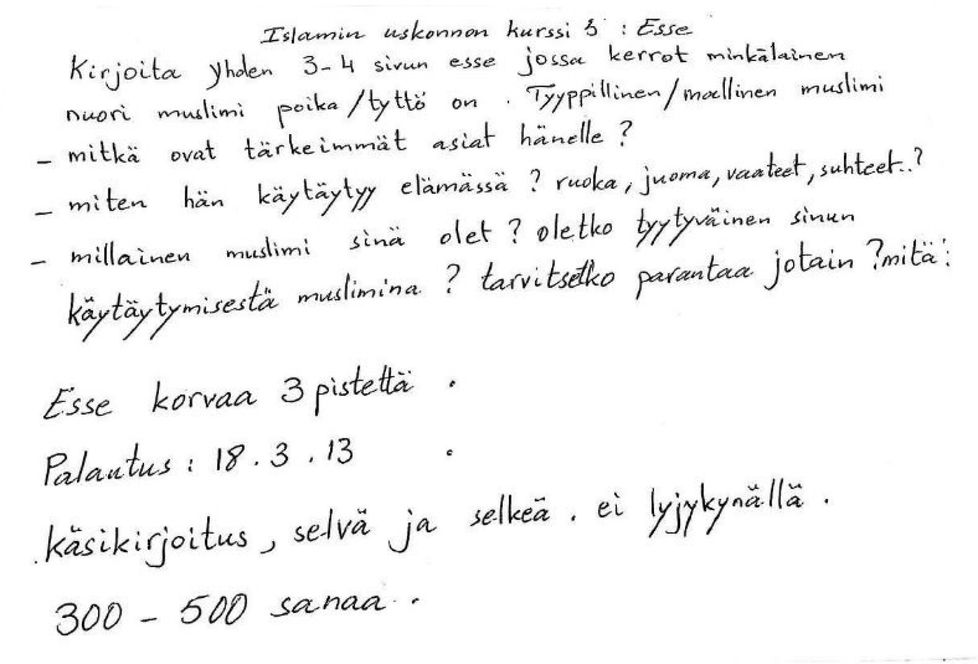 Islamin uskonnon kurssi 3 : Esse
Kirjoita yhden 3-4 sivun esse jossa kerrot minkälainen
nuori muslimi poika/tyttö on . Tyyppillinen/mallinen muslimi
- mitkä ovat tärkeimmät asiat hänelle ?
- miten hän käytäytyy elämässä ? ruoka, juoma, vaateet, suhteet..?
- millainen muslimi sinä olet ? oletko tyytyväinen sinun
käytäytymisestä muslimina ? tarvitsetko parantaa jotain ? mitä:
Esse korvaa 3 pistettä .
Palautus : 18.3.13 .
käsikirjoitus, selvä ja selkeä . ei lyjykynällä .
300 - 500 sanaa .